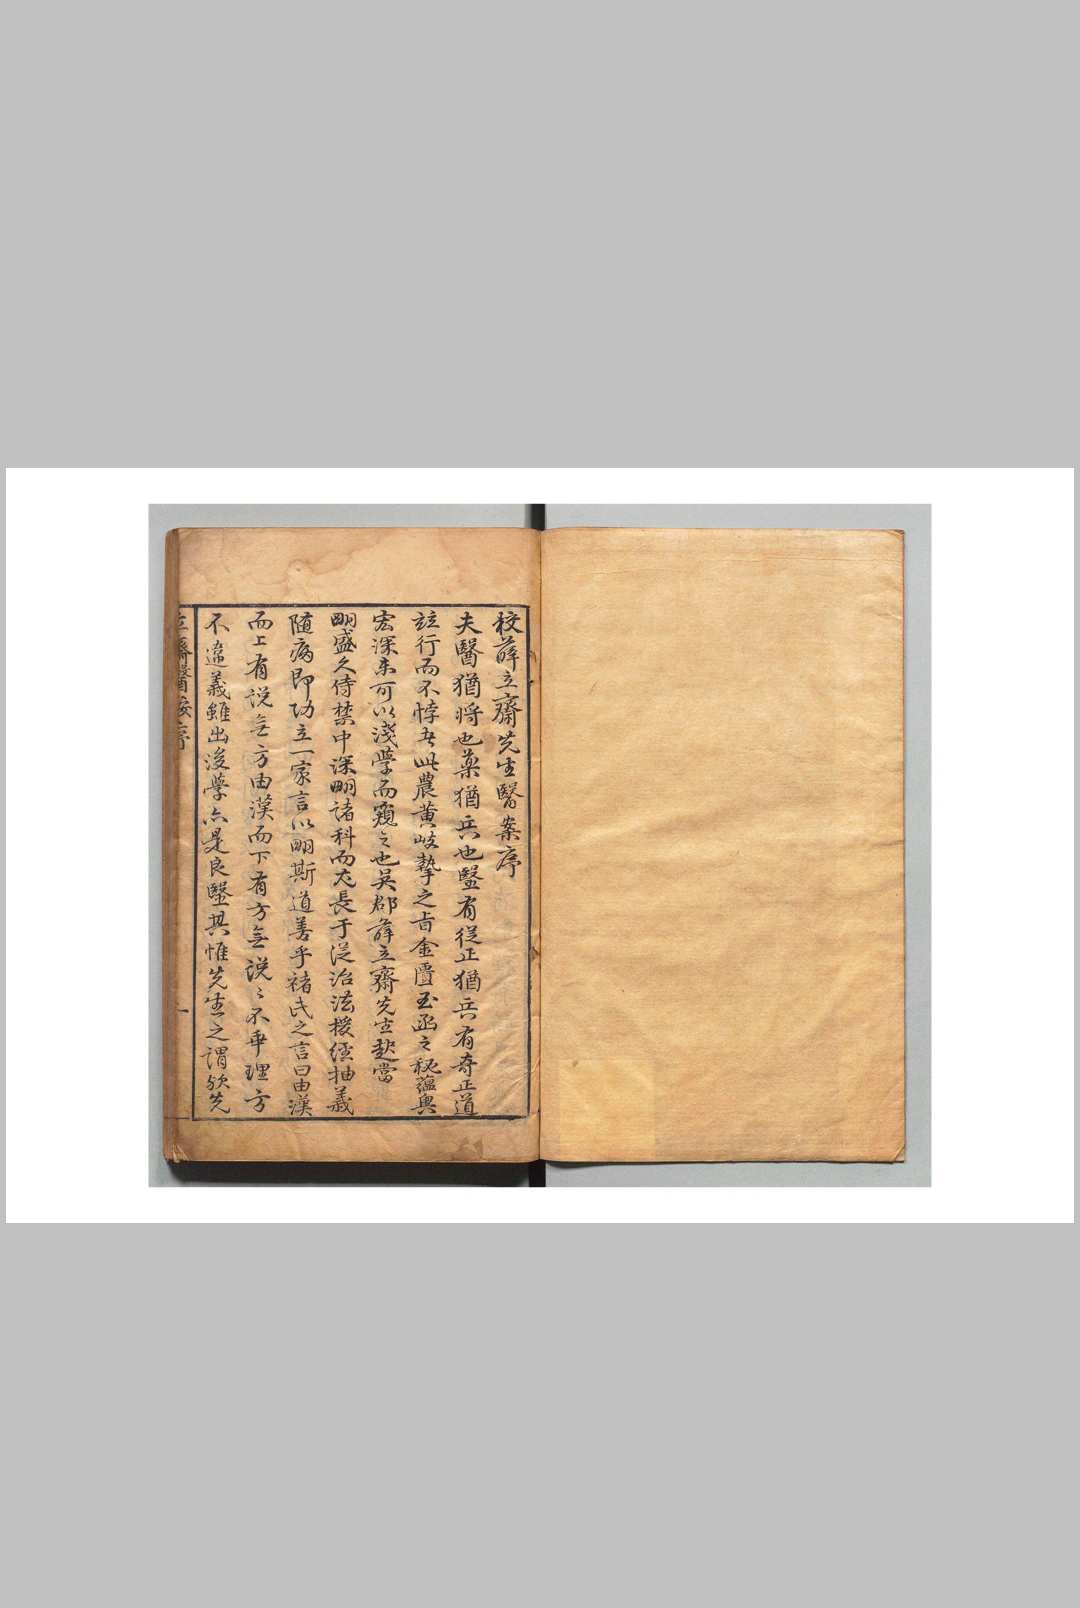 校薛立齋先生醫案序
夫醫猶將也藥猶兵也毉有從正猶兵有奇正道
竝行而不悖者此農黄岐摯之旨金匱玉函之秘蘊奥
宏深未可以淺學而窺之也吳郡薛立齋先生起當
眀盛久侍禁中深眀諸科而尤長于泛治法援經抽義
随病即功立一家言以眀斯道善乎褚氏之言曰由漢
而上有説無方由漢而下有方無説〻不乖理方
不違義雖出後學亦是良毉其惟先生之謂歟先
立齋醫按序 一